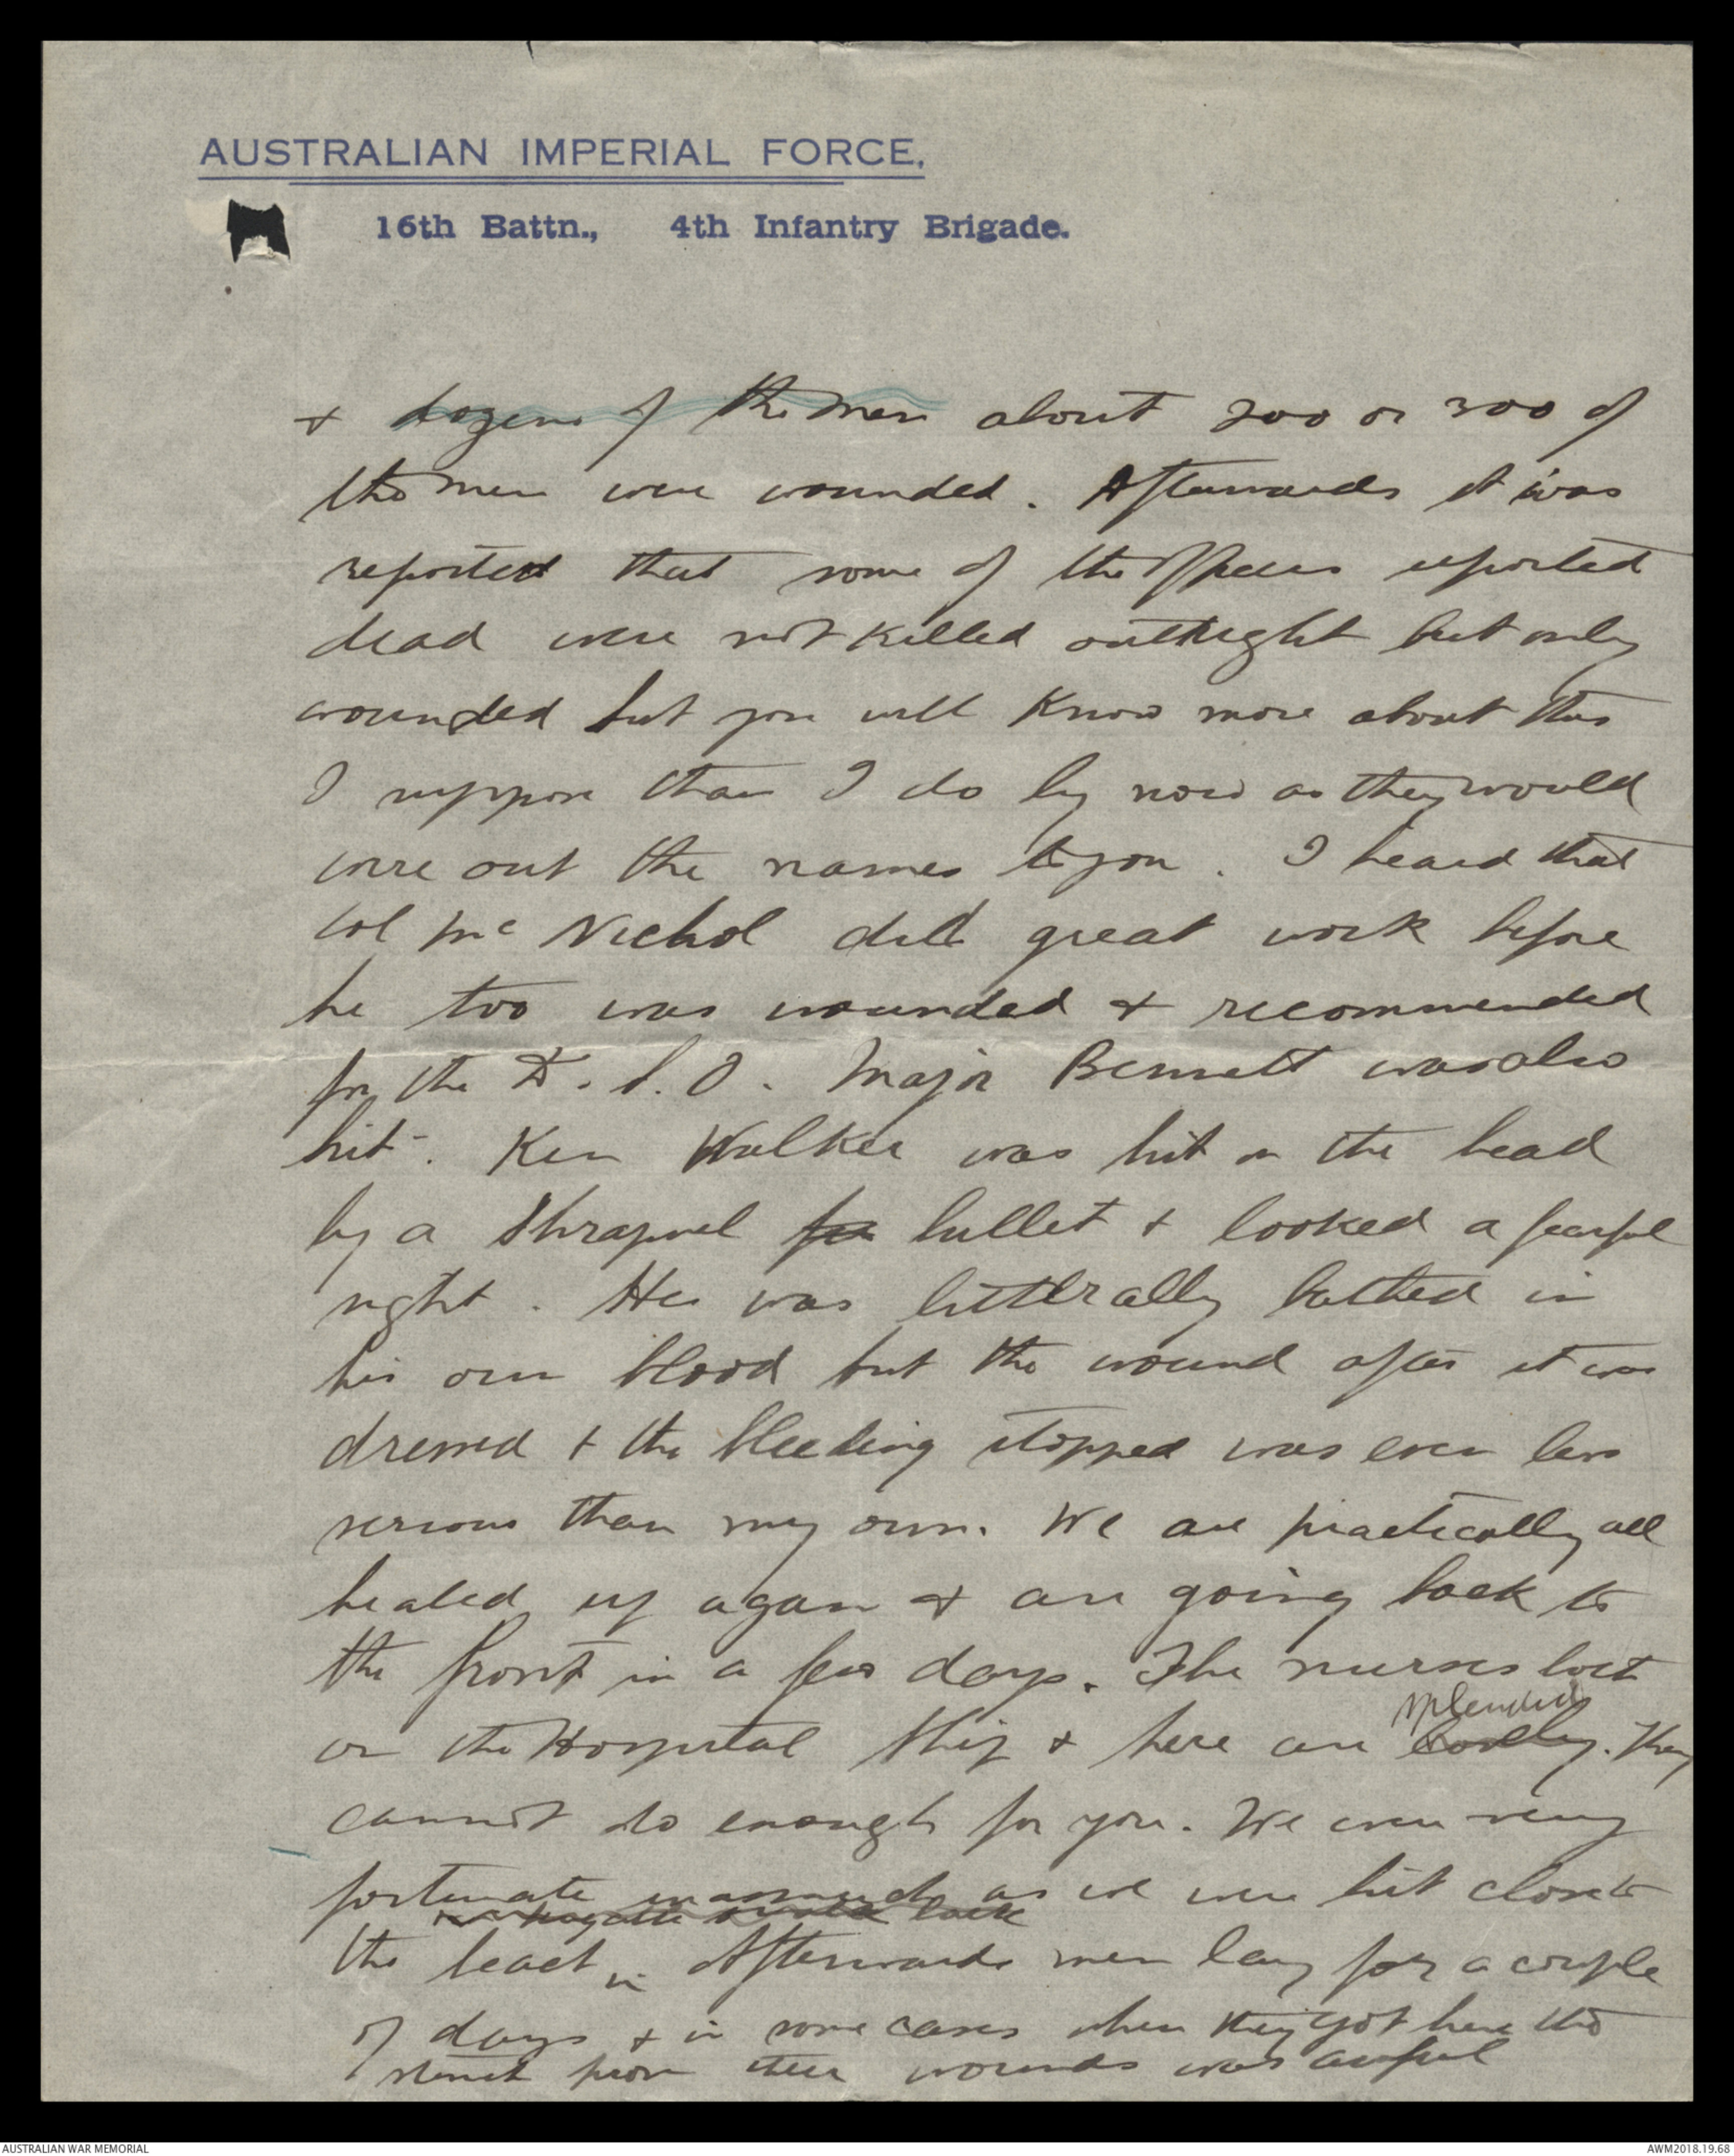 AUSTRALIAN IMPERIAL FORCE.
16th Battn., 4th Infantry Brigade.
& dozens of the men about 200 or 300 of
the men were wounded. Afterwards it was
reported that some of the officers reported
dead were not killed outright but only
wounded but you will know more about this
I suppose than I do by now as they would
wire out the names to you. I heard that
Col McNichol did great work before
he too was wounded & recommended
for the D.S.O. Major Bennett was also
hit. Ken Walker was hit on the head
by a Shrapnel bullet & looked a fearful
sight. He was litterally bathed in
his own blood but the wound after it was
dressed & the bleeding stopped was even less
serious than my own. We are practically all
healed up again & are going back to
the front in a few days. The nurses both
splendid
on the Hospital Ship & here are lovely. They
cannot do enough for you. We were very
fortunate inasmuch as we were hit close to
the beach. Afterwards men lay for a couple
of days & in some cases when they got here the
stench from their wounds was awful
AUSTRALIAN WAR MEMORIAL
AWM2018.19.68